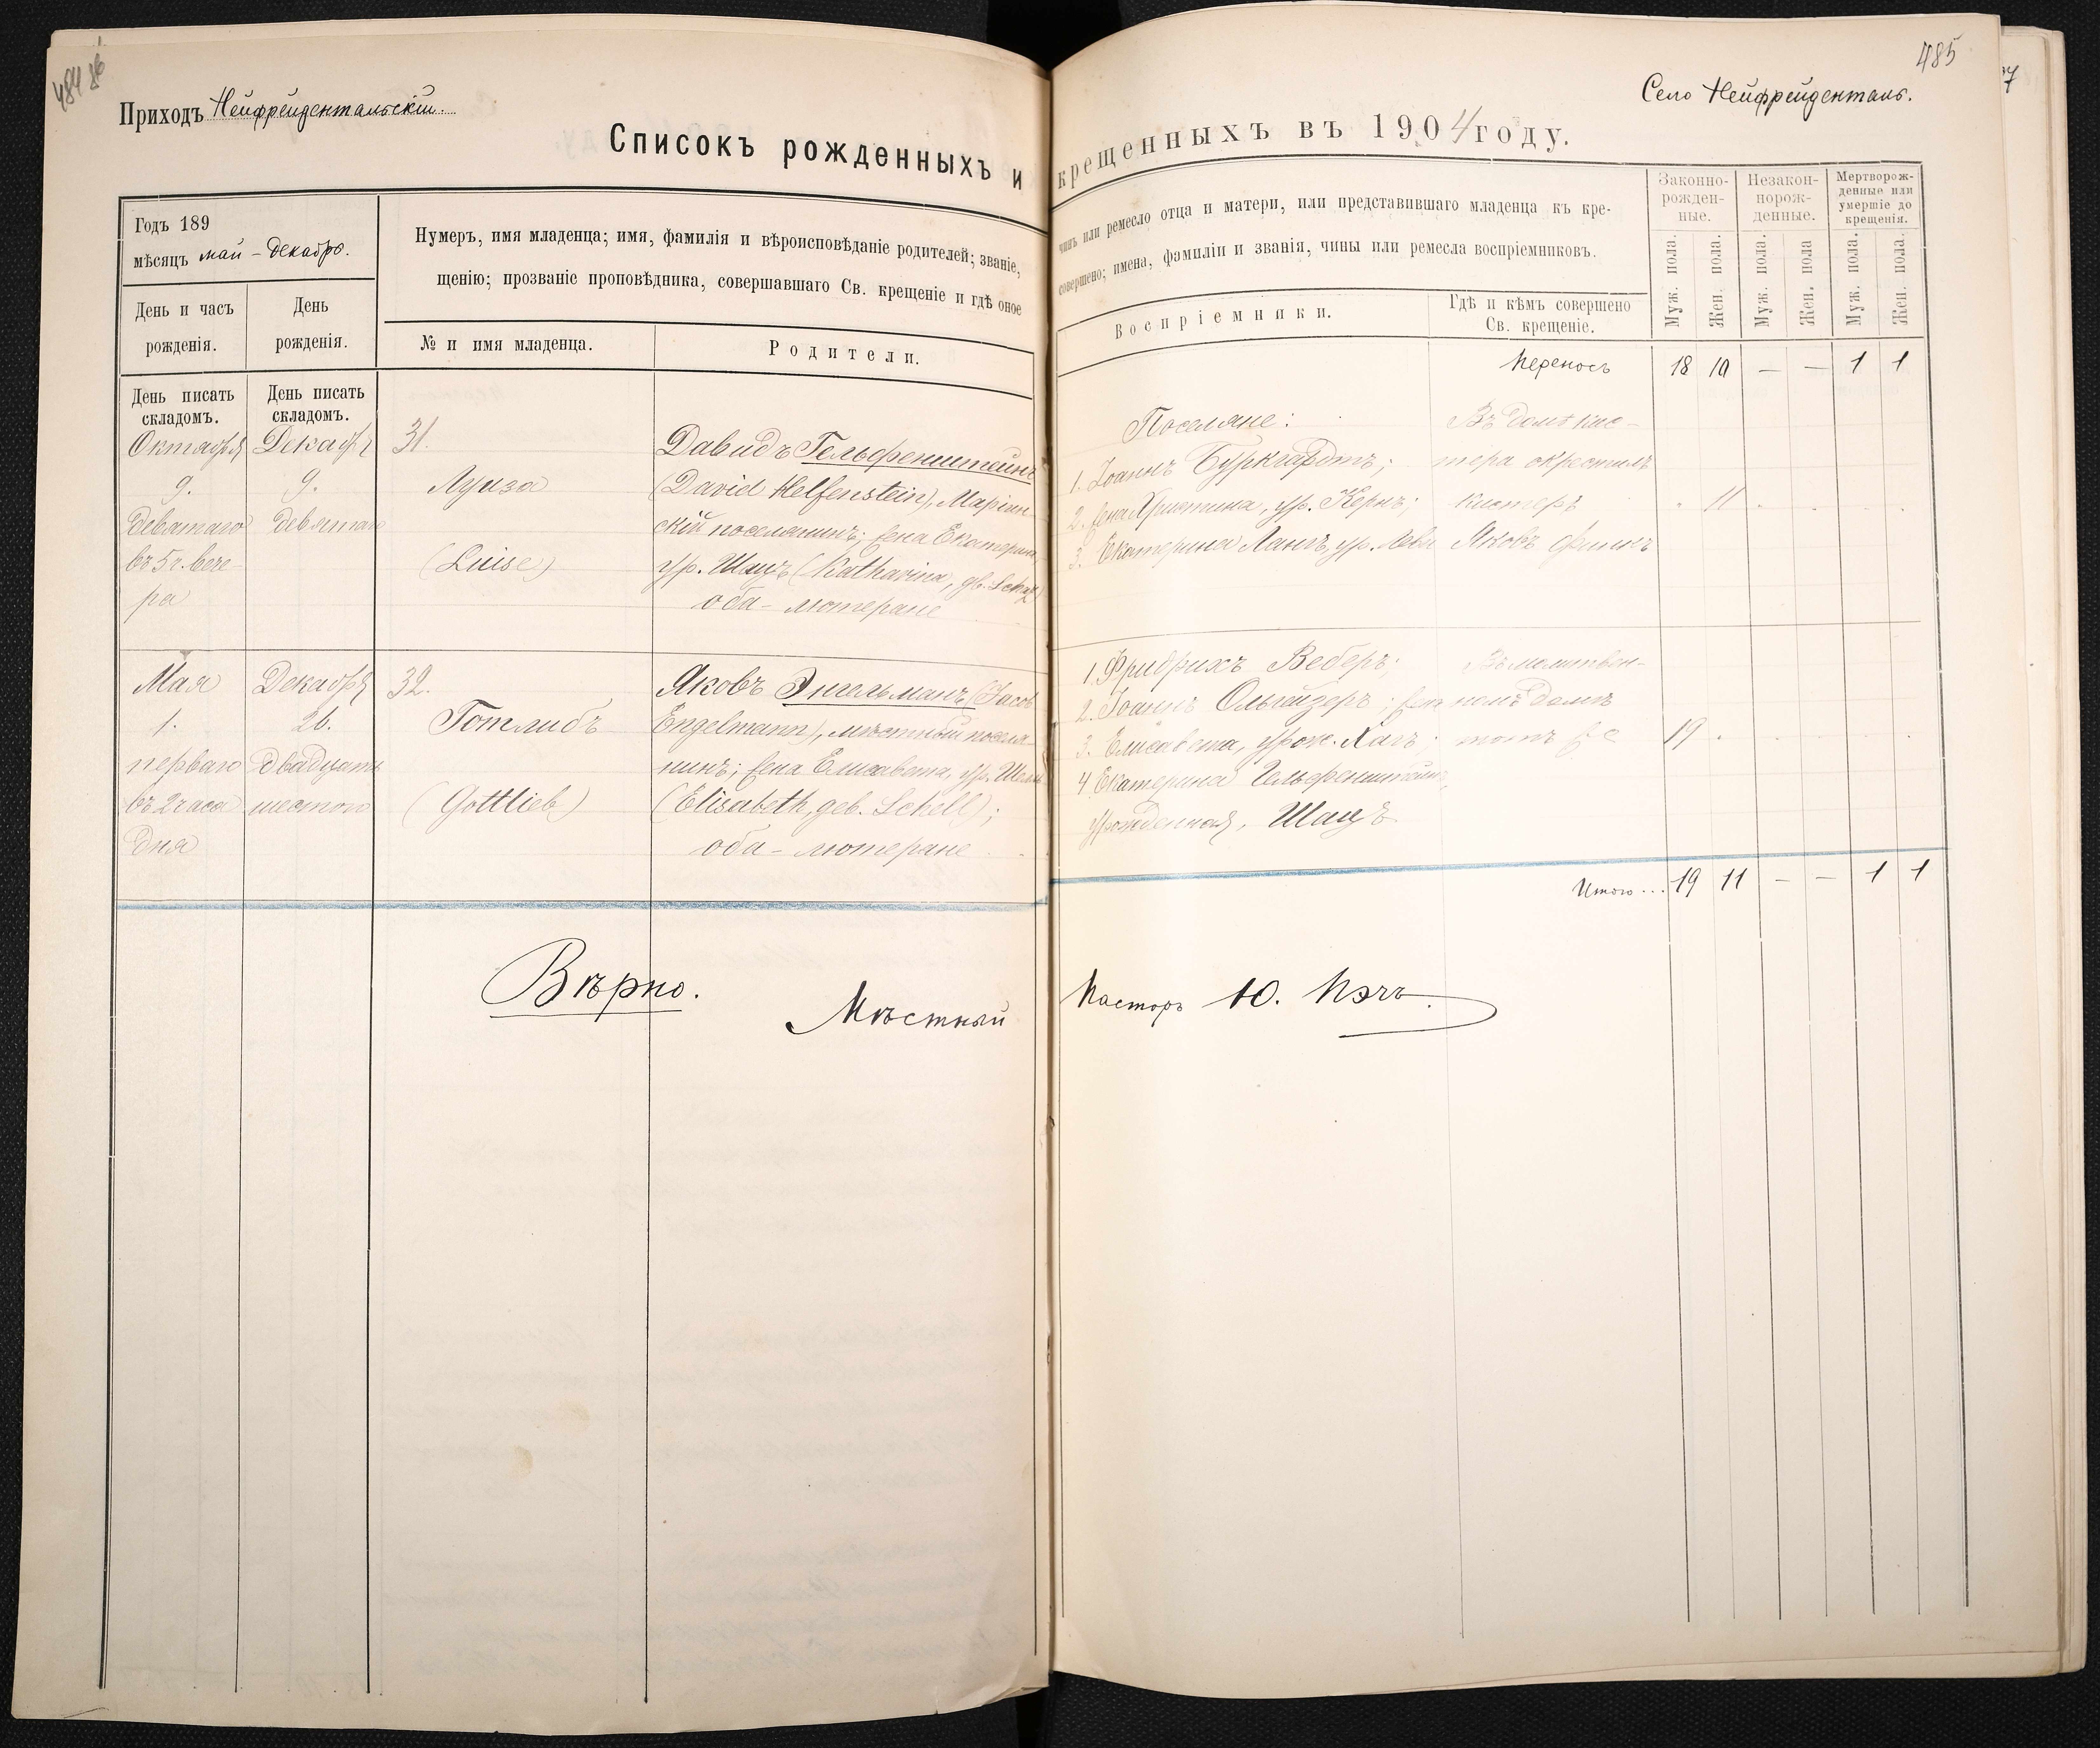 484 об
Приходъ Нейфрейдентальскій.
Списокъ рожденныхъ и
Годъ 189
мѣсяцъ май - декабрь.
Нумеръ, имя младенца; имя, фамилія и вѣроисповѣданіе родителей; званіе,
щенію; прозваніе проповѣдника, совершавшаго Св. крещеніе и гдѣ оное
День и часъ рожденія.
День рожденія.
№ и имя младенца.
Родители.
День писать складомъ.
День писать складомъ.
Октября
9.
девятаго
въ 5 ч. вече-
ра
Декабр
9.
девятаго
31.
Луиза
(Luise)
Давидъ Гельфенштейнъ
(David Helfenstein), Маріин-
скій поселянинъ; жена Екатерина,
ур. Шацъ (Katharina, gb. Schatz)
оба - лютеране
Мая
1.
перваго
въ 2 часа
дня
Декабря
26.
двадцать
шестого
32.
Готлибъ
(Gottlieb)
Яковъ Энгельманъ (Jacob
Engelmann), мѣстный поселя-
нинъ; жена Елисавета, ур. Шелль
(Elisabeth, geb. Schell);
оба - лютеране
Вѣрно.
Мѣстный
485
Село Нейфрейденталь.
крещенныхъ въ 1904 году.
чинъ или ремесло отца и матери, или представившаго младенца къ кре-
совершено; имена, фамиліи и званія, чины или ремесла воспріемниковъ.
Воспріемники.
Гдѣ и кѣмъ совершено
Св. крещеніе.
Законно-
рожден-
ные.
Незакон-
норож-
денные.
Мертворож-
денные или
умершіе до
крещенія.
Муж. пола.
Жен. пола.
Муж. пола.
Жен. пола
Муж. пола.
Жен. пола.
Переносъ 18 10 — — 1 1
Поселяне:
1. Іоаннъ Буркгардтъ;
2. жена Христина, ур. Кернъ;
3. Екатерина Лангъ, ур. Леви
Въ домѣ кис-
тера окрестилъ
кистеръ
Яковъ Финкъ
11
1. Фридрихъ Веберъ
2. Іоаннъ Ольгейзеръ; жена
3. Елисавета, урож. Хагъ;
4 Екатерина Гельфенштейнъ,
урожденная, Шацъ
Въ молитвен-
номъ домѣ
тотъ же
19
Итого... 19 11 — — 1 1
Пасторъ Ю. Пэчъ.